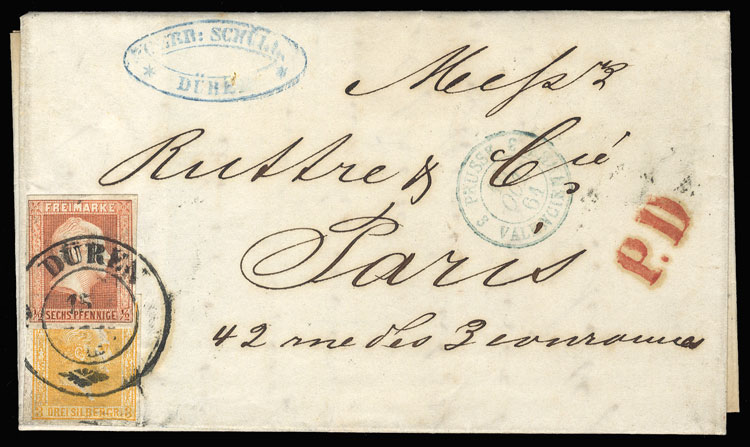 SCHÜLL
* DÜREN *
Messrs
Ruttre & Cie
Paris
42 rue des 3 couronnes
PRUSSE
61
S VALENCIENNES
P.D
FREIMARKE
½ SECHS PFENNIGE ½
DÜREN
3 DREI SILBERGR. 3